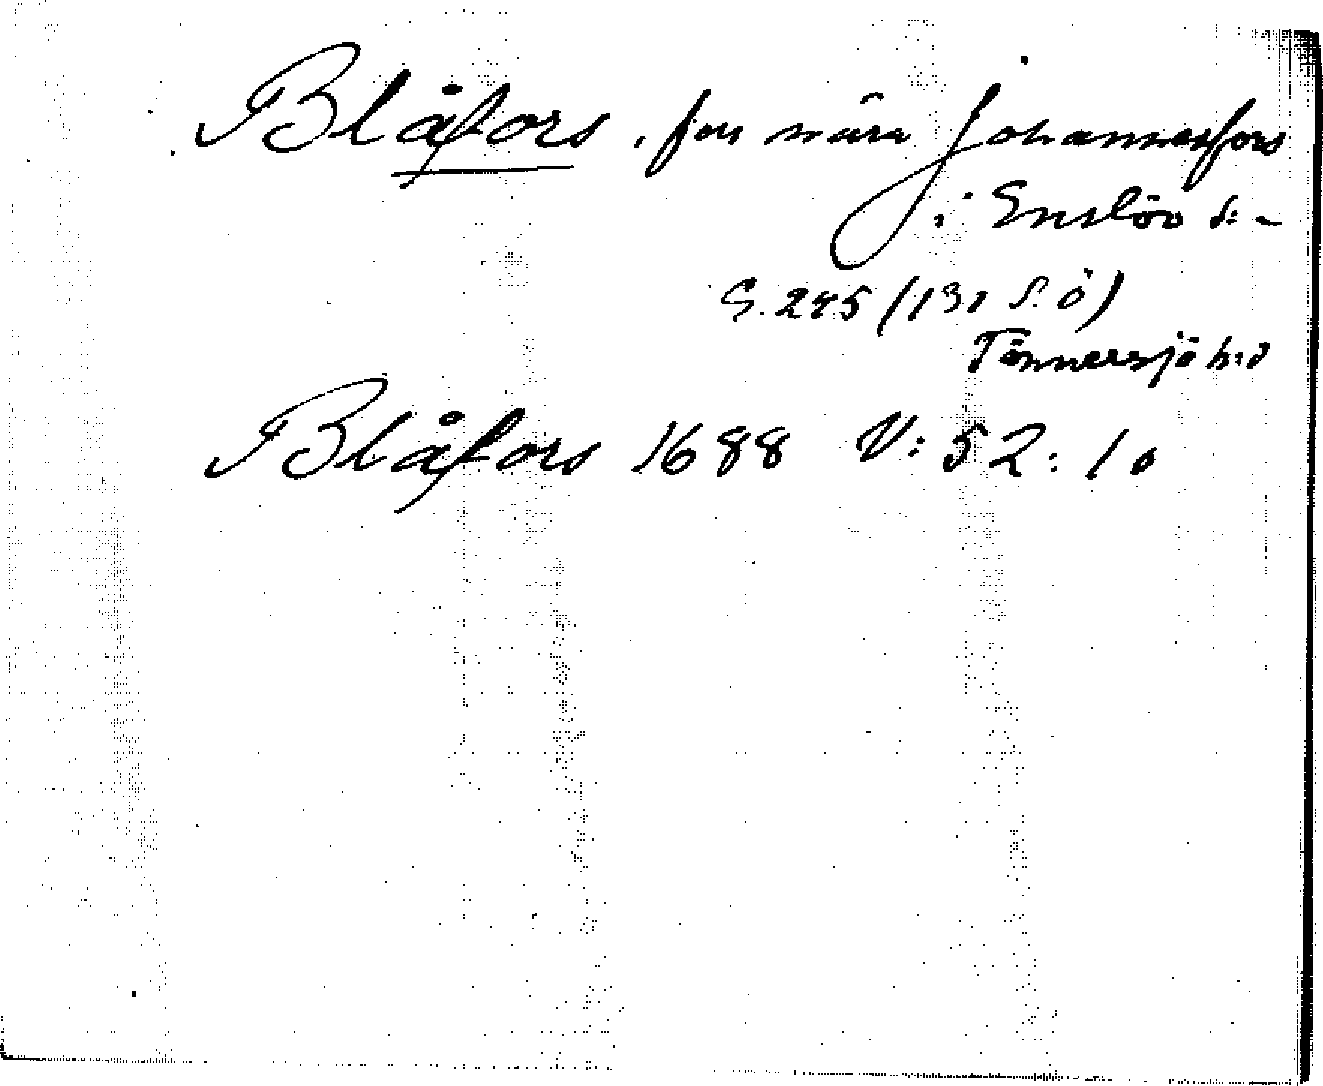 Blåfors, fors nära Johannesfors
i Enslöv s:n
S. 245 (131 S.Ö)
Tönnersjö h:d
Blåfors 1688 V:52:10